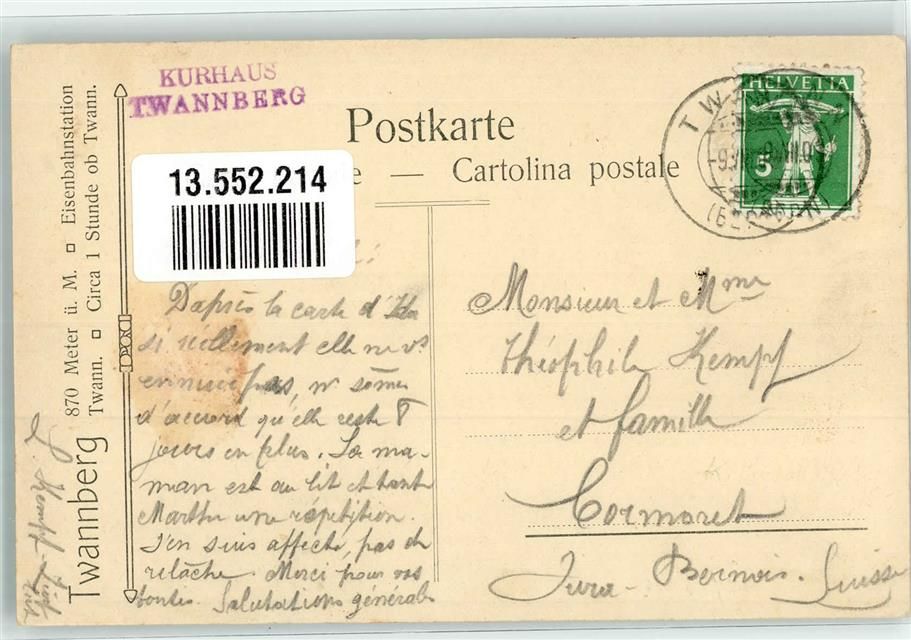 KURHAUS
TWANNBERG
Postkarte
— Cartolina postale
13.552.214
HELVETIA
5
TWANN
Twannberg
870 Meter ü. M. □ Eisenbahnstation
Twann. □ Circa 1 Stunde ob Twann.
D'après la carte d'Ida
si réellement elle ne vs
ennuie pas, ns sômes
d'accord qu'elle reste 8
jours en plus. Sa ma-
man est au lit et tante
Marthe une répétition.
J'en suis affecté, pas de
relâche. Merci pour vos
bontés. Salutations générales
L. Kempf
Monsieur et Mme
Théophile Kempf
et famille
Cormoret
Jura-Bernois. Suisse